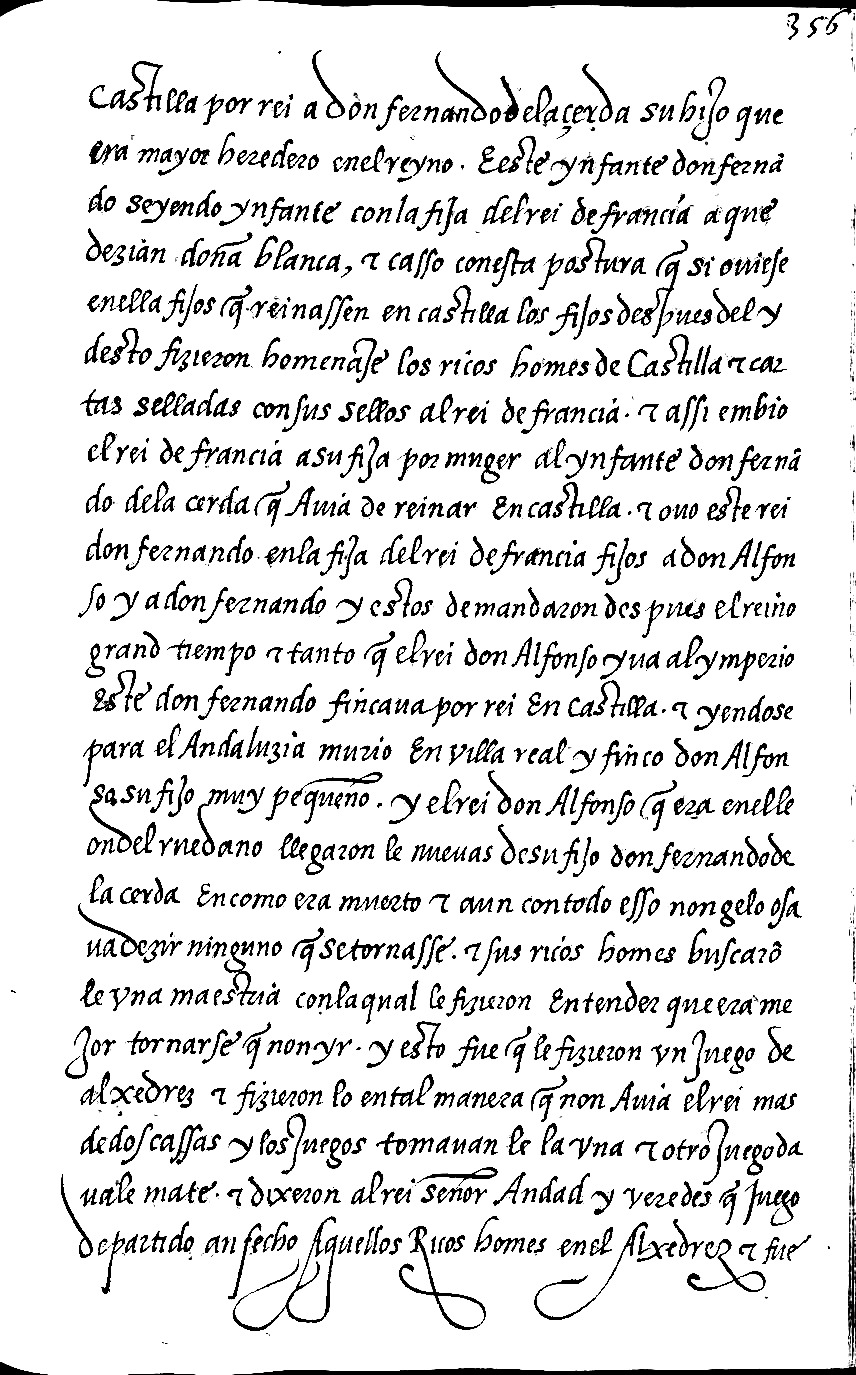 356
Castilla por rei a don fernando de la çerda su hijo que
era mayor heredero en el reyno. E este ynfante don fernã
do seyendo ynfante con la fija del rei de francia a que
dezian doña blanca, τ casso con esta postura q̃ si oviese
en ella fijos q̃ reinassen en castilla los fijos despues del y
desto fizieron homenaje los ricos homes de Castilla τ car
tas selladas con sus sellos al rei de francia. τ assi embio
el rei de francia a su fija por muger al ynfante don fernã
do de la cerda q̃ Auia de reinar En castilla. τ ouo este rei
don fernando en la fija del rei de francia fijos a don Alfon
so y a don fernando y estos demandaron despues el reino
grand tiempo τ tanto q̃ el rei don Alfonso yua al ymperio
Este don fernando fincaua por rei En Castilla. τ yendose
para el Andaluzia murio En villa real y finco don Alfon
so su fijo muy pequeño. y el rei don Alfonso q̃ era en elle
on del ruedano llegaron le nuevas de su fijo don fernando de
la cerda En como era muerto τ aun con todo esso non gelo osa
ua dezir ninguno q̃ se tornasse. τ sus ricos homes buscarõ
le vna maestria con la qual le fizieron Entender que era me
jor tornarse q̃ non yr. y esto fue q̃ le fizieron vn juego de
alxedrez τ fizieron lo en tal manera q̃ non Auia el rei mas
de dos cassas y los juegos tomauan le la vna τ otro juego da
uale mate. τ dixeron al rei señor Andad y veredes q̃ juego
departido an fecho Aquellos Ricos homes en el Alxedrez τ fue